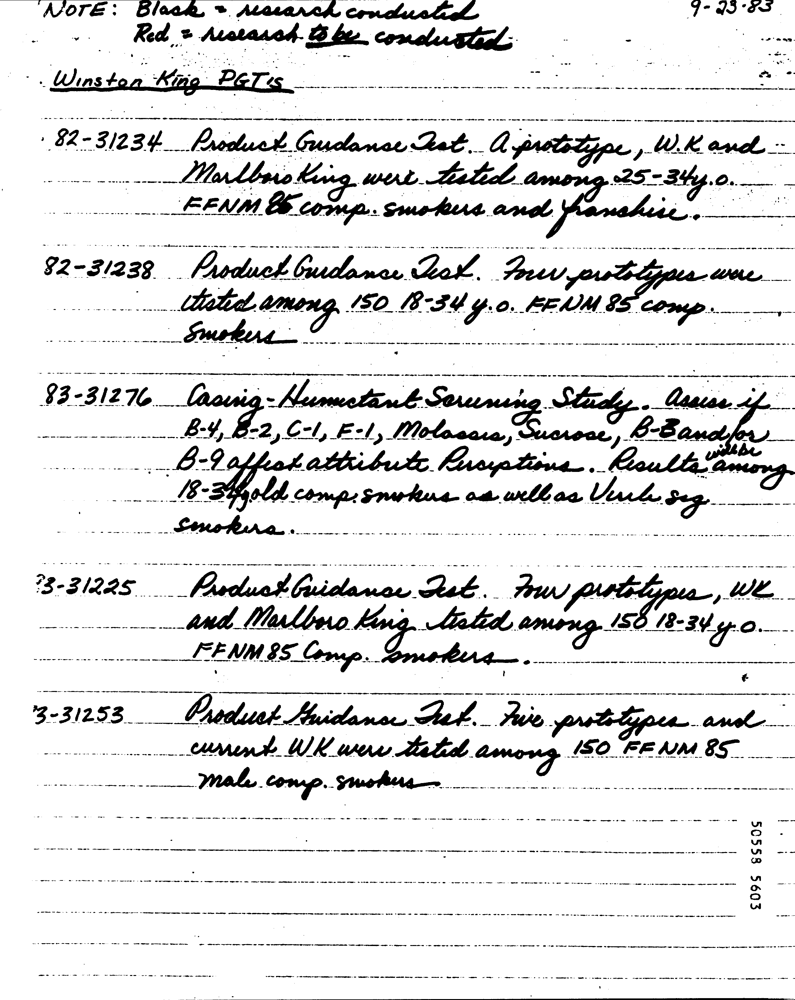 NOTE: Black = research conducted
9-23-83
Red = research to be conducted
Winston King PGT's
82-31234 Product Guidance Test. A prototype, W.K and
Marlboro King were tested among 25-34 y.o.
FFNM 85 comp. smokers and franchise.
82-31238 Product Guidance Test. Four prototypes were
tested among 150 18-34 y.o. FFNM 85 comp.
Smokers
83-31276 Casing-Humectant Screening Study. Assess if
B-4, B-2, C-1, F-1, Molasses, Sucrose, B-3 and/or
B-9 affect attribute Perceptions. Results will be among
18-34 y old comp. smokers as well as Virile seg
smokers.
3-31225 Product Guidance Test. Four prototypes, WK
and Marlboro King tested among 150 18-34 y.o.
FFNM 85 Comp. smokers.
3-31253 Product Guidance Test. Five prototypes and
current WK were tested among 150 FFNM 85
male comp. smokers
50558 5603